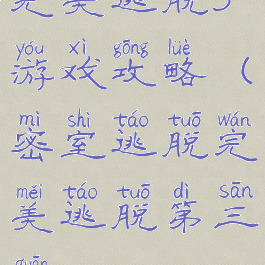 完美逃脱》
yóu xì gōng lüè
游戏攻略（
mì shì táo tuō wán
密室逃脱完
měi táo tuō dì sān
美逃脱第三
guān